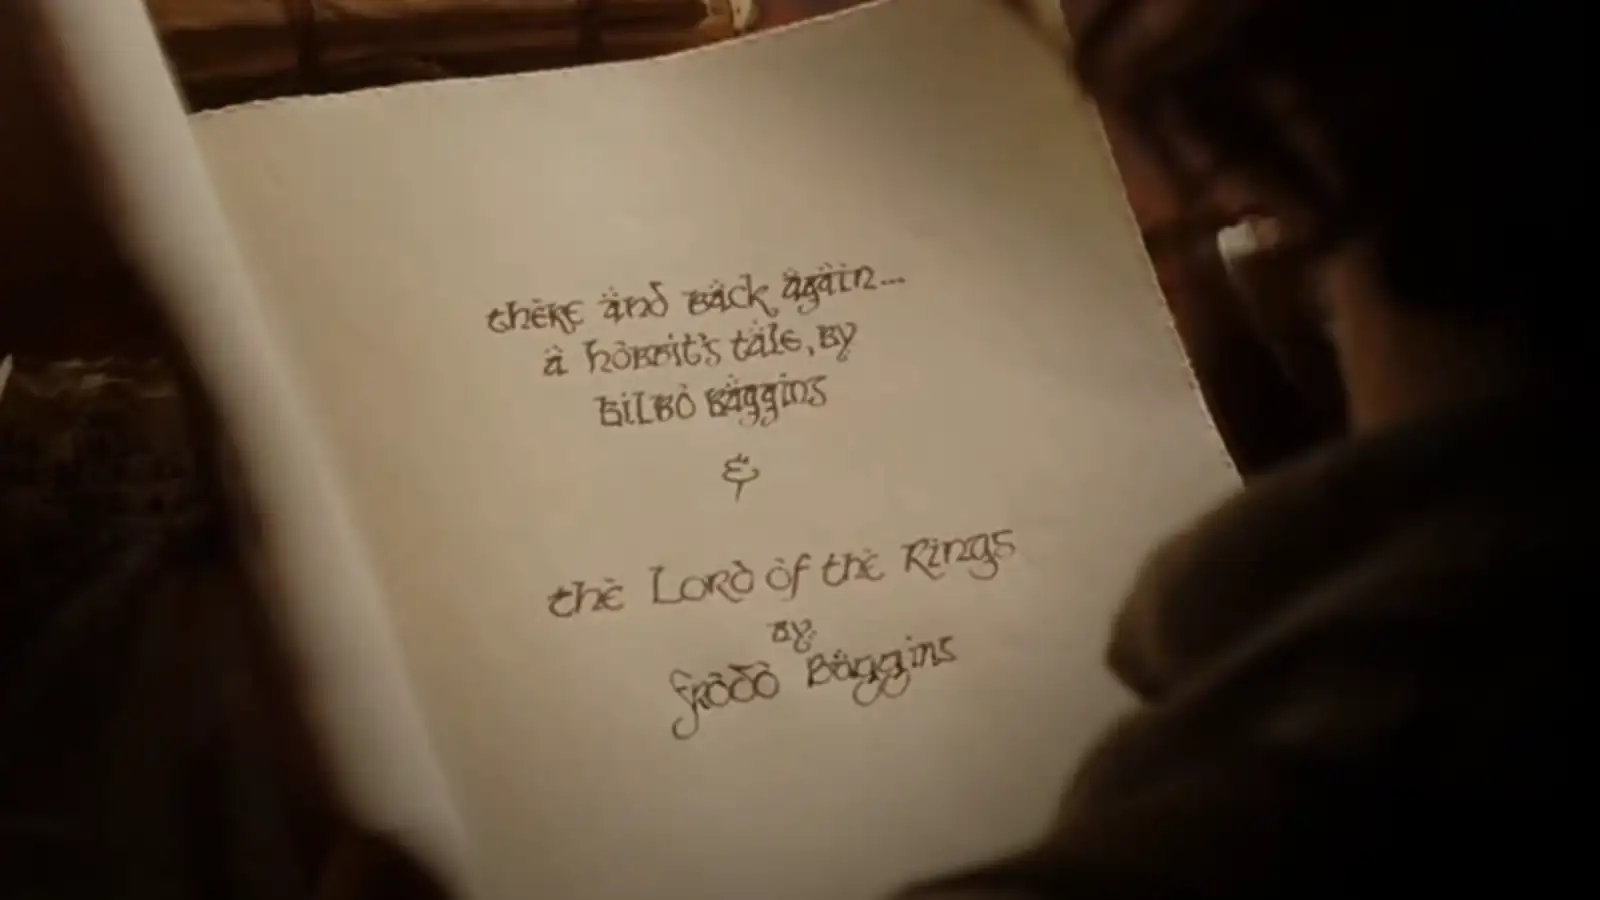 there and back again...
a hobbit's tale, by
Bilbo Baggins
&
the Lord of the Rings
by
frodo Baggins